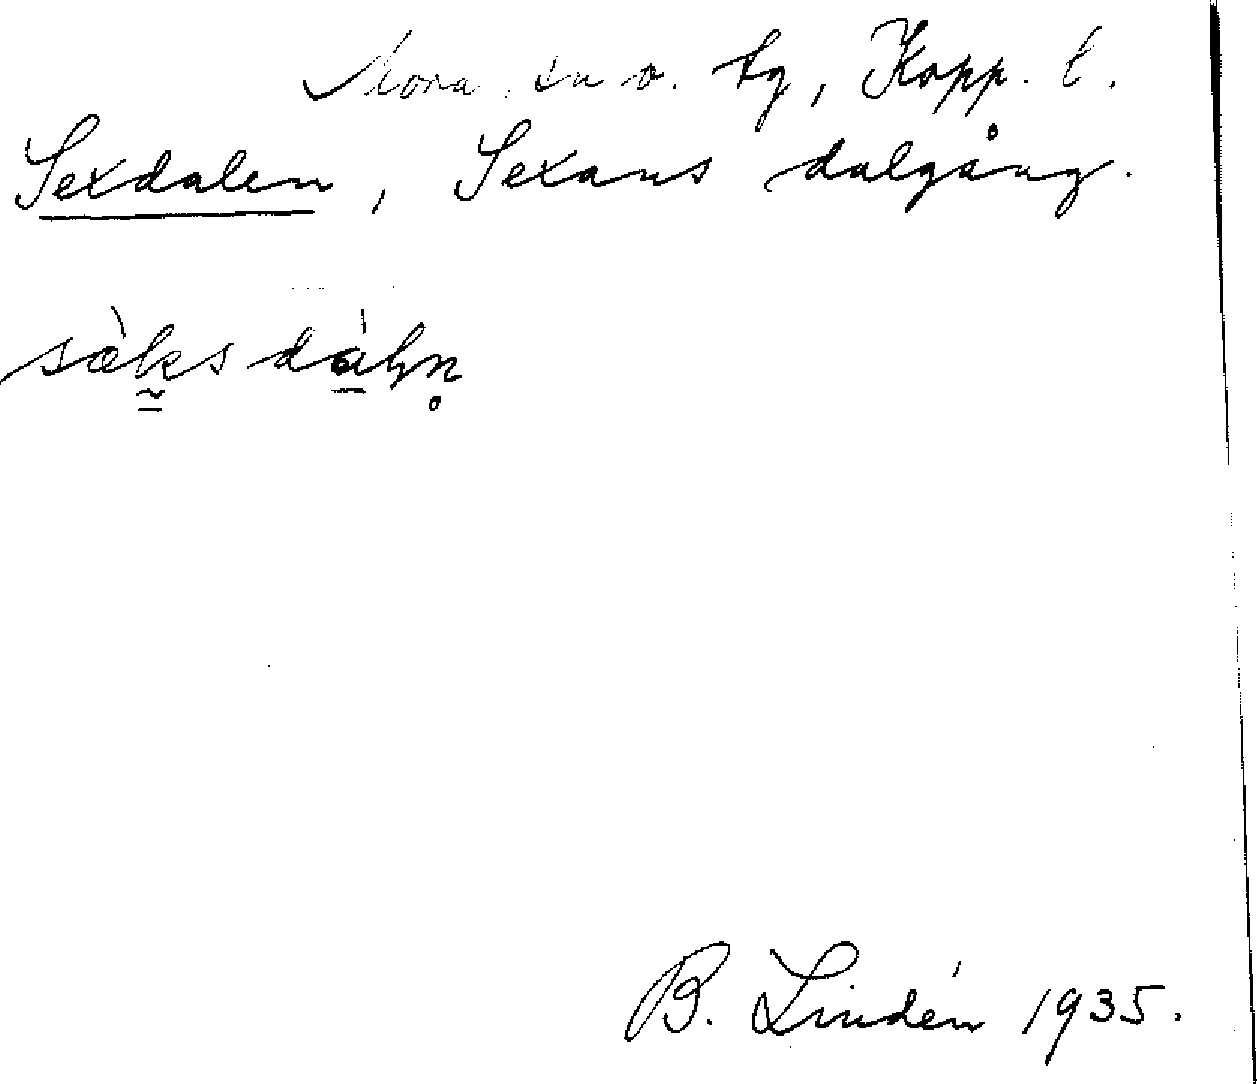 Mora sn o. tg, Kopp. l.
Sexdalen, Sexans dalgång.
B. Lindén 1935.